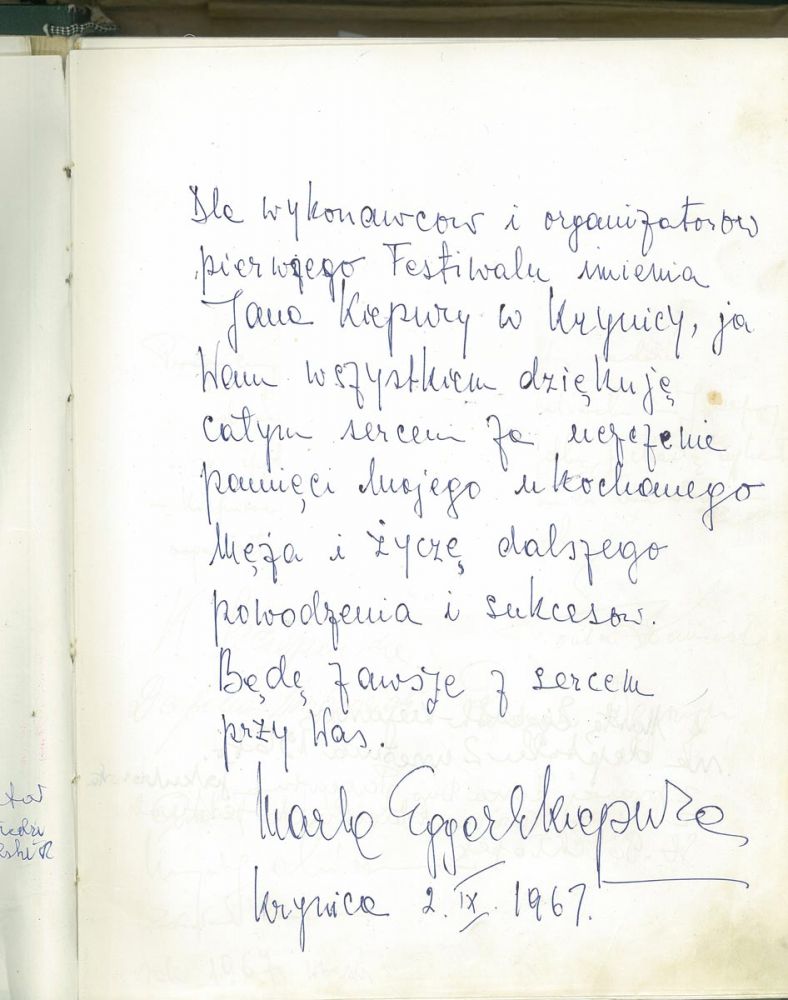 Dla wykonawcow i organizatorow
pierwzego Festiwalu imienia
Jana Kiepury w Krynicy, ja
Wam wszystkiem dziękuję
całym sercem za uczczenie
pamięci mojego ukochanego
męża i życzę dalszego
powodzenia i sukcesow.
Będę zawsze z sercem
przy Was.
Marta Eggerth Kiepura
Krynica 2. IX. 1967.